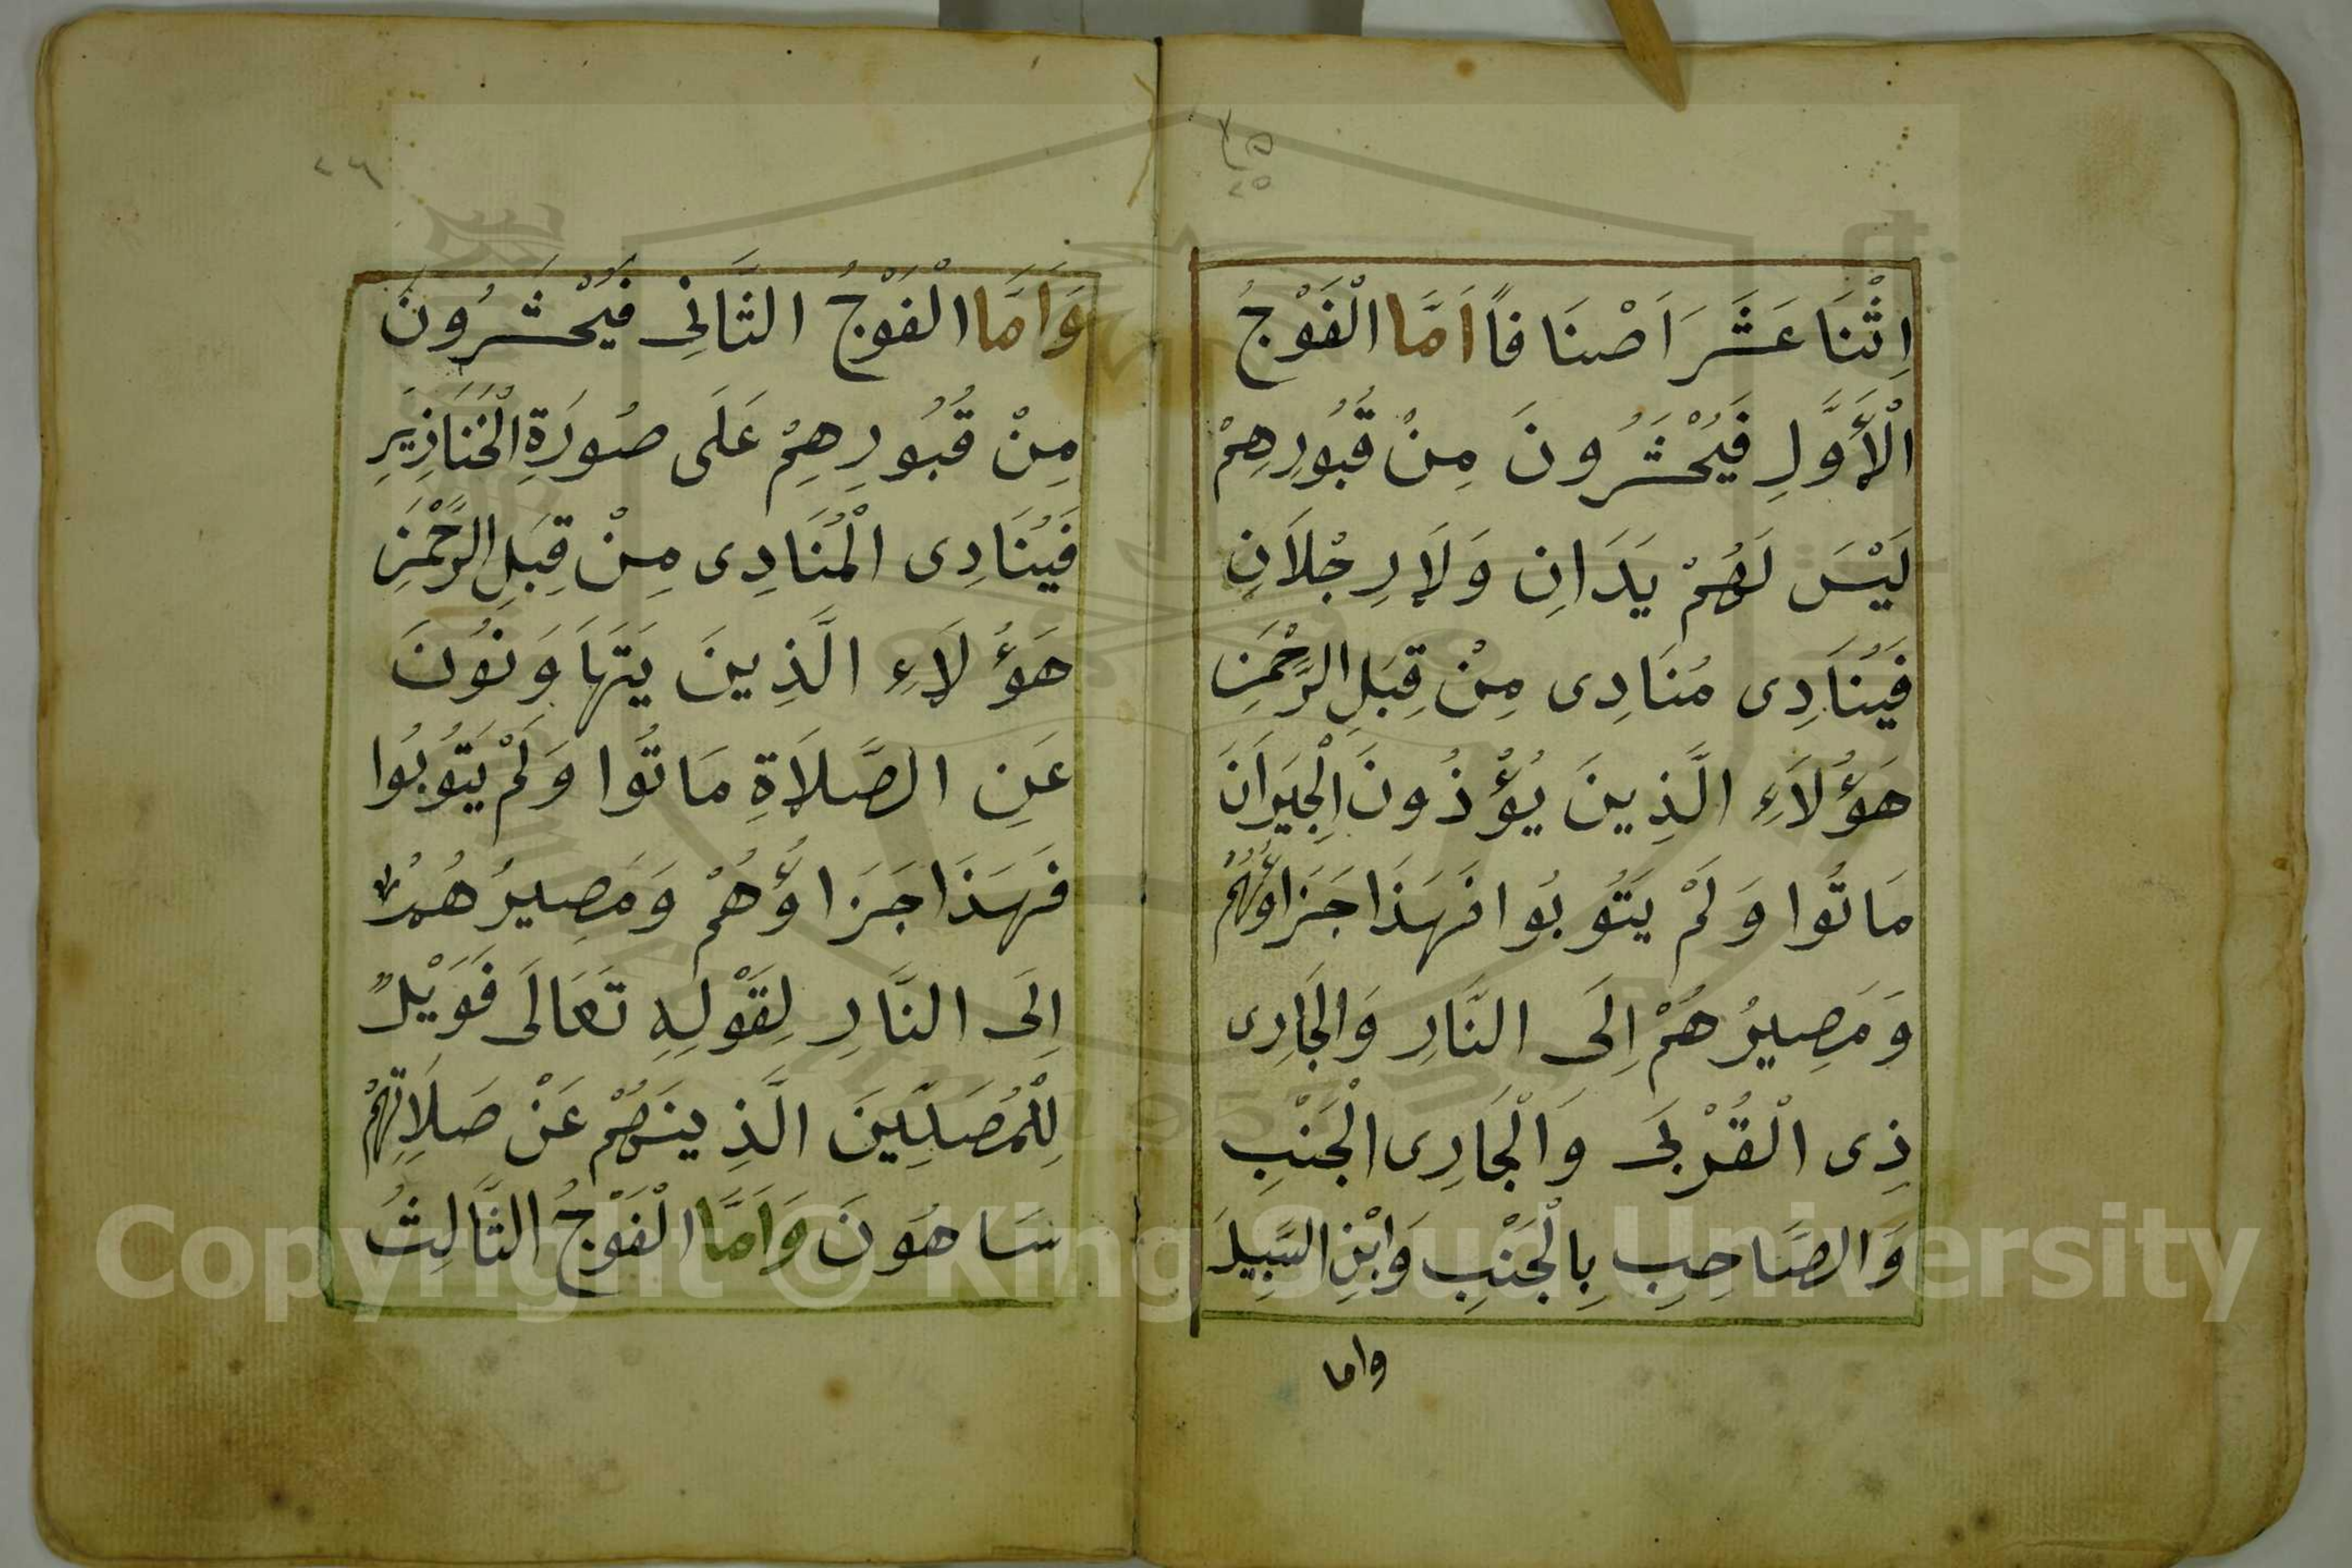 ٢٥
اِثْنَا عَشَرَ اَصْنَافاً اَمَّا الْفَوْجُ
الْأَوَّلِ فَيُحْشَرُونَ مِنْ قُبُورِهِمْ
لَيْسَ لَهُمْ يَدَانِ وَلَا رِجْلَانِ
فَيُنَادِى مُنَادِى مِنْ قِبَلِ الرَّحْمٰنِ
هَؤُلَاءِ الَّذِينَ يُؤْذُونَ الْجِيرَانَ
مَاتُوا وَلَمْ يَتُوبُوا فَهَذَا جَزَاؤُهُمْ
وَمَصِيرُهُمْ اِلَى النَّارِ وَالْجَارِى
ذِى الْقُرْبَى وَالْجَارِى الْجَنْبِ
وَالصَّاحِبِ بِالْجَنْبِ وَابْنِ السَّبِيلَ
واما
٢٦
وَاَمَّا الْفَوْجُ الثَّانِى فَيُحْشَرُونَ
مِنْ قُبُورِهِمْ عَلَى صُورَةِ الْخَنَازِيرِ
فَيُنَادِى الْمُنَادِى مِنْ قِبَلِ الرَّحْمٰنِ
هَؤُلَاءِ الَّذِينَ يَتَهَاوَنُونَ
عَنِ الصَّلَاةِ مَاتُوا وَلَمْ يَتُوبُوا
فَهَذَا جَزَاؤُهُمْ وَمَصِيرُهُمْ
اِلَى النَّارِ لِقَوْلِهِ تَعَالَى فَوَيْلٌ
لِلْمُصَلِّينَ الَّذِينَهُمْ عَنْ صَلَاتِهِمْ
سَاهُونَ وَاَمَّا الْفَوْجُ الثَّالِثُ
Copyright © King Saud University
1957